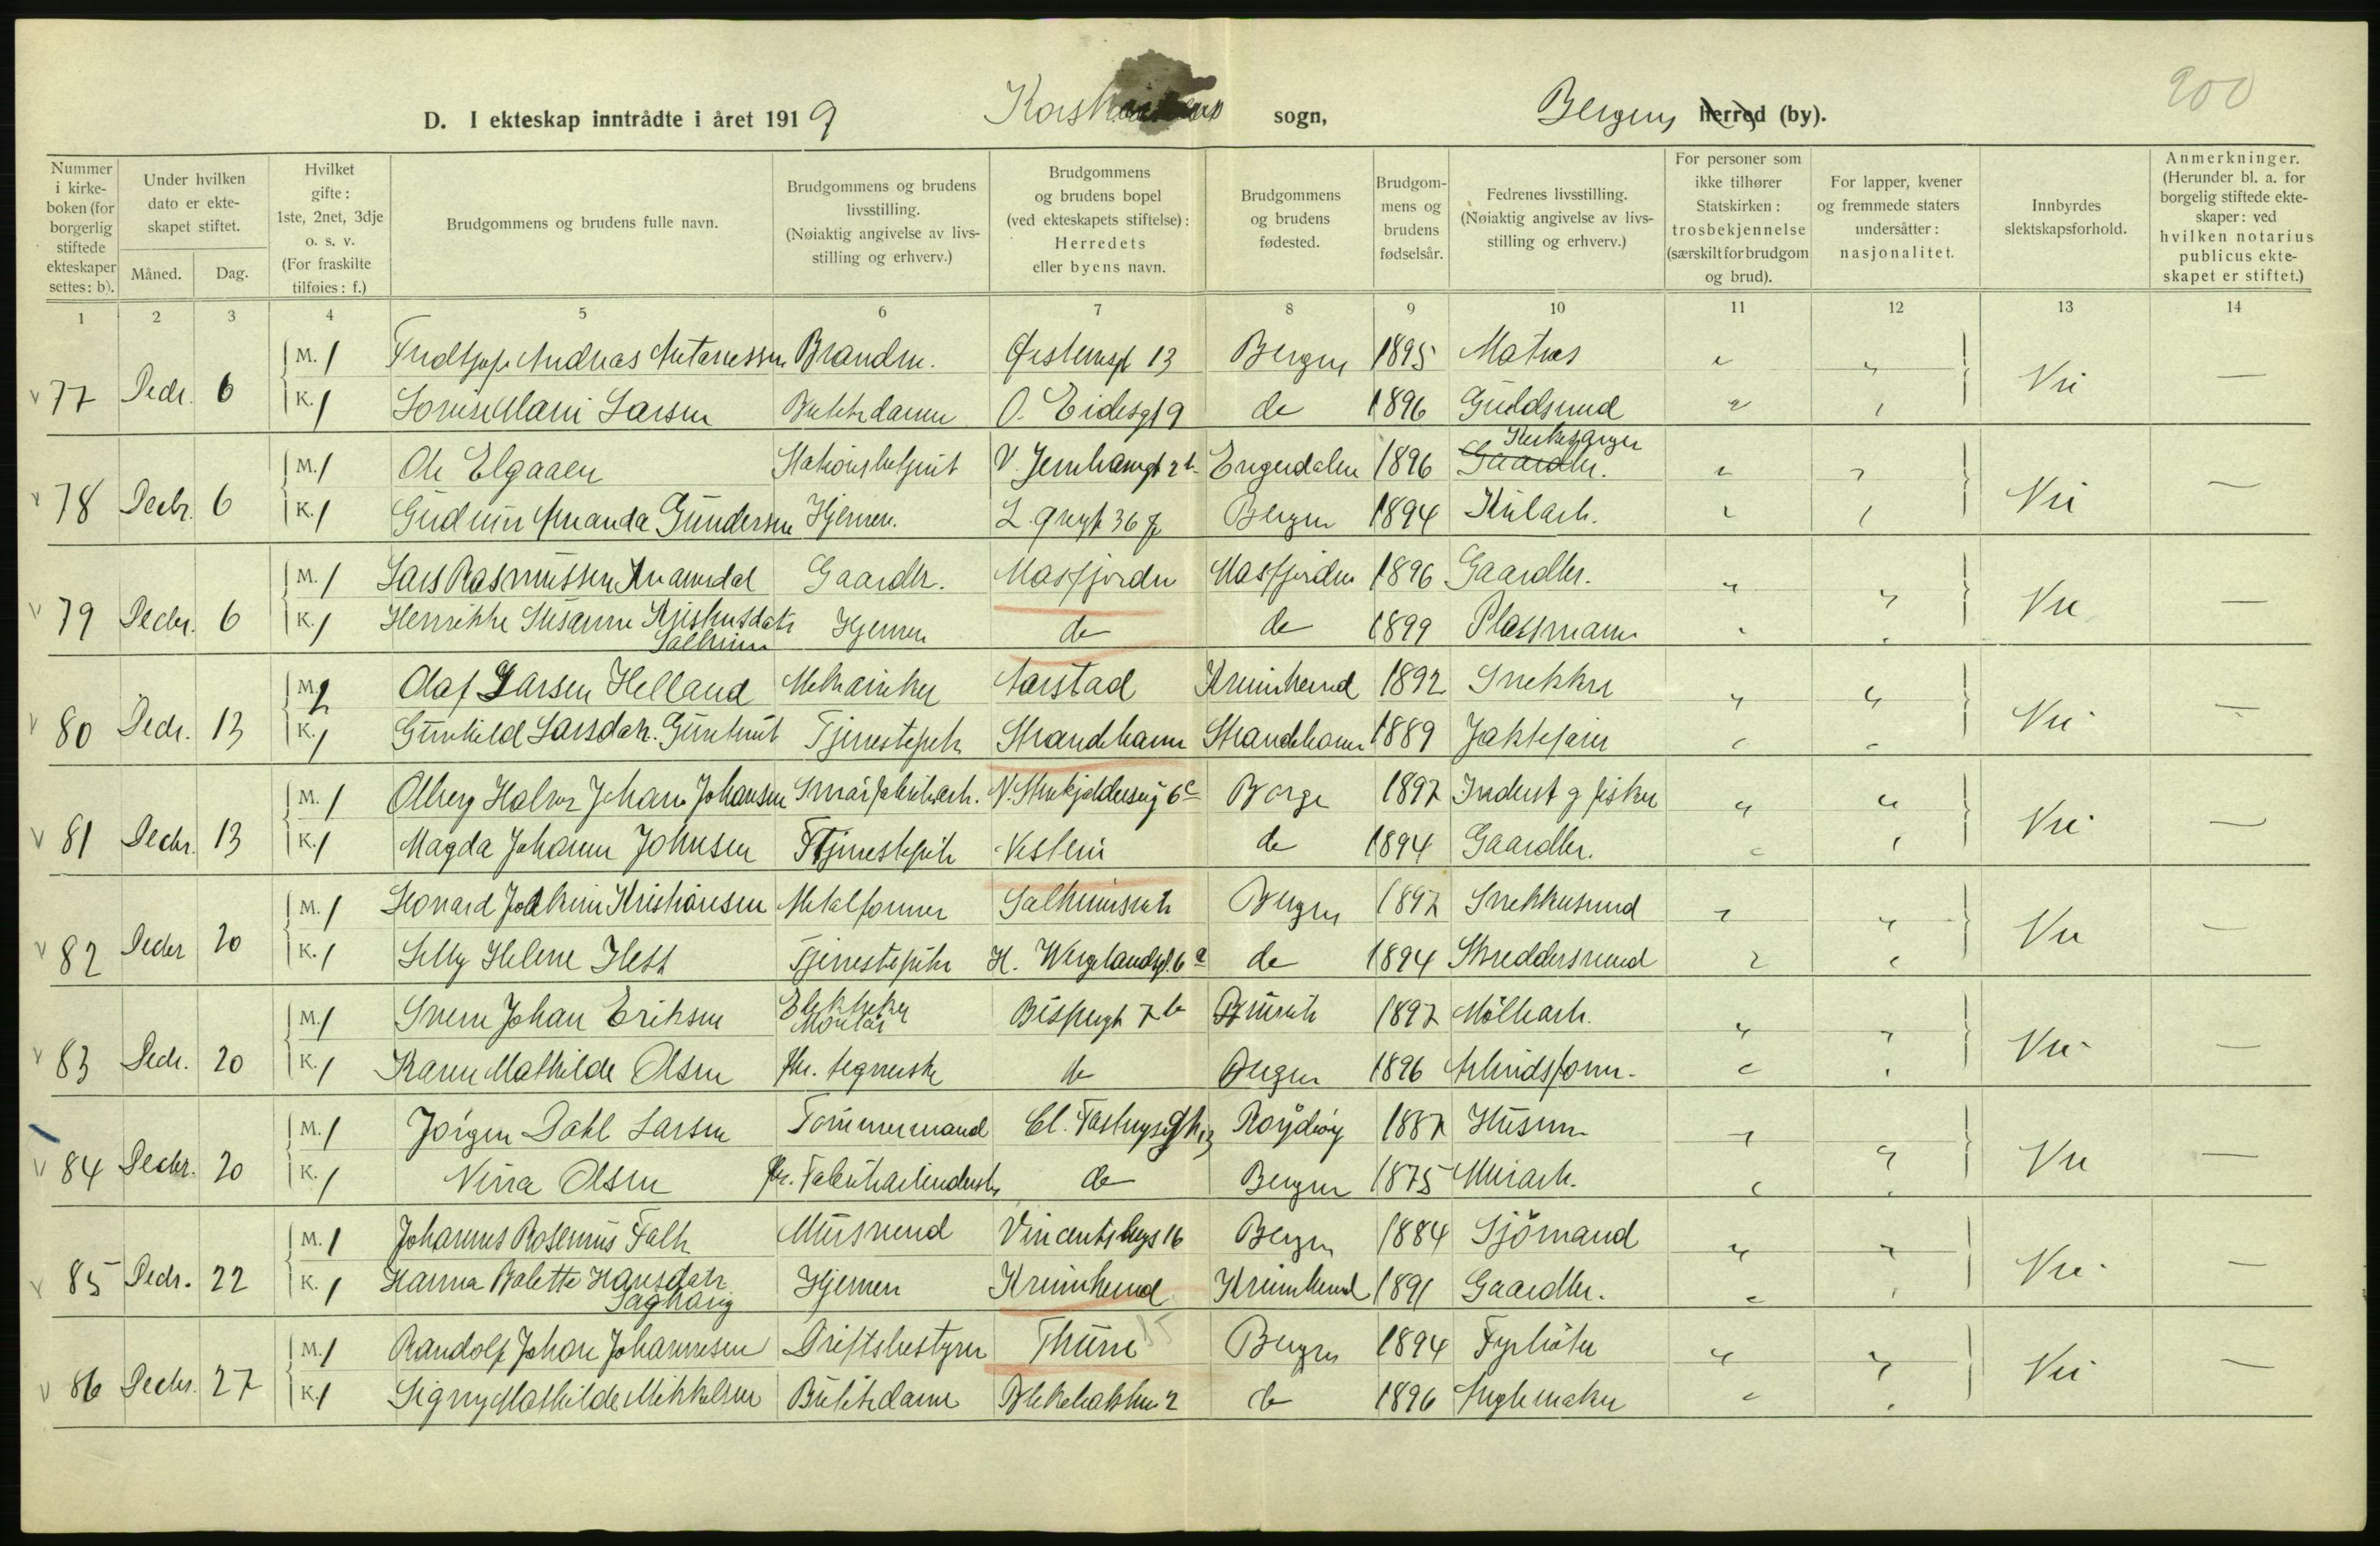 200
D. I ekteskap inntrådte i året 1919 sogn, Bergens herred (by).
Nummer i kirkeboken (for borgerlig stiftede ekteskaper settes: b).
Under hvilken dato er ekteskapet stiftet.
Måned. Dag.
Hvilket gifte: 1ste, 2net, 3dje o. s. v. (For fraskilte tilføies: f.)
Brudgommens og brudens fulle navn.
Brudgommens og brudens livsstilling. (Nøiaktig angivelse av livsstilling og erhverv.)
Brudgommens og brudens bopel (ved ekteskapets stiftelse): Herredets eller byens navn.
Brudgommens og brudens fødested.
Brudgommens og brudens fødselsår.
Fedrenes livsstilling. (Nøiaktig angivelse av livsstilling og erhverv.)
For personer som ikke tilhører Statskirken: trosbekjennelse (særskilt for brudgom og brud).
For lapper, kvener og fremmede staters undersåtter: nasjonalitet.
Innbyrdes slektskapsforhold.
Anmerkninger. (Herunder bl. a. for borgelig stiftede ekteskaper: ved hvilken notarius publicus ekteskapet er stiftet.)
1 2 3 4 5 6 7 8 9 10 11 12 13 14
77 Decbr. 6 M. 1 Andreas Brandm. 13 Bergen 1895 Matros " " Nei —
K. 1 Larsen Butikdame O. Eidesgt 9 do 1896 Guldsmed " "
78 Decbr. 6 M. 1 Ole Elgaaen Stationsbetjent Engerdalen 1896 Gaardbr. Kirkesanger " " Nei —
K. 1 Gudrun Amanda Gundersen Hjemme. Bergen 1894 " "
79 Decbr. 6 M. 1 Lars Rasmussen Gaardbr. Masfjorden Masfjorden 1896 Gaardbr. " " Nei —
K. 1 Henrikke Susanne Hjemme do do 1899 Plassmann " "
80 Decbr. 13 M. 2 Olaf Larsen Helland Mekaniker Aarstad Kvinnherred 1892 Snekker " " Nei —
K. 1 Gunhild Larsdatr. Tjenestepike Strandebarm Strandebarm 1889 Jakteeier " "
81 Decbr. 13 M. 1 Halvor Johan Johansen 6c Borge 1897 " " Nei —
K. 1 Magda Johanne Johnsen Tjenestepike do 1894 Gaardbr. " "
82 Decbr 20 M. 1 Kristiansen Metalformer Bergen 1897 Snekkersvend " " Nei —
K. 1 Helene Tjenestepike H. Wergelandsgt. 6a do 1894 Skreddersvend " "
83 Decbr. 20 M. 1 Johan Eriksen Elektriker Montør Bispengt 7b 1897 Møllearb. " " Nei —
K. 1 Karen Mathilde Olsen do Bergen 1896 Arbeidsform. " "
84 Decbr. 20 M. 1 Jørgen Dahl Larsen Tømmermand 13 1887 Husm. " " Nei —
K. 1 Olsen do Bergen 1875 Murarb. " "
85 Decbr. 22 M. 1 Johannes Falk Mursvend 16 Bergen 1884 Sjømand " " Nei —
K. 1 Hanna Hansdatr Hjemme Kvinnherred Kvinnherred 1891 Gaardbr. " "
86 Decbr. 27 M. 1 Randolf Johan Johannesen Driftsbestyrer Bergen 1894 Fyrbøter " " Nei —
K. 1 Signy Mathilde Mikkelsen Butikdame 2 do 1896 " "